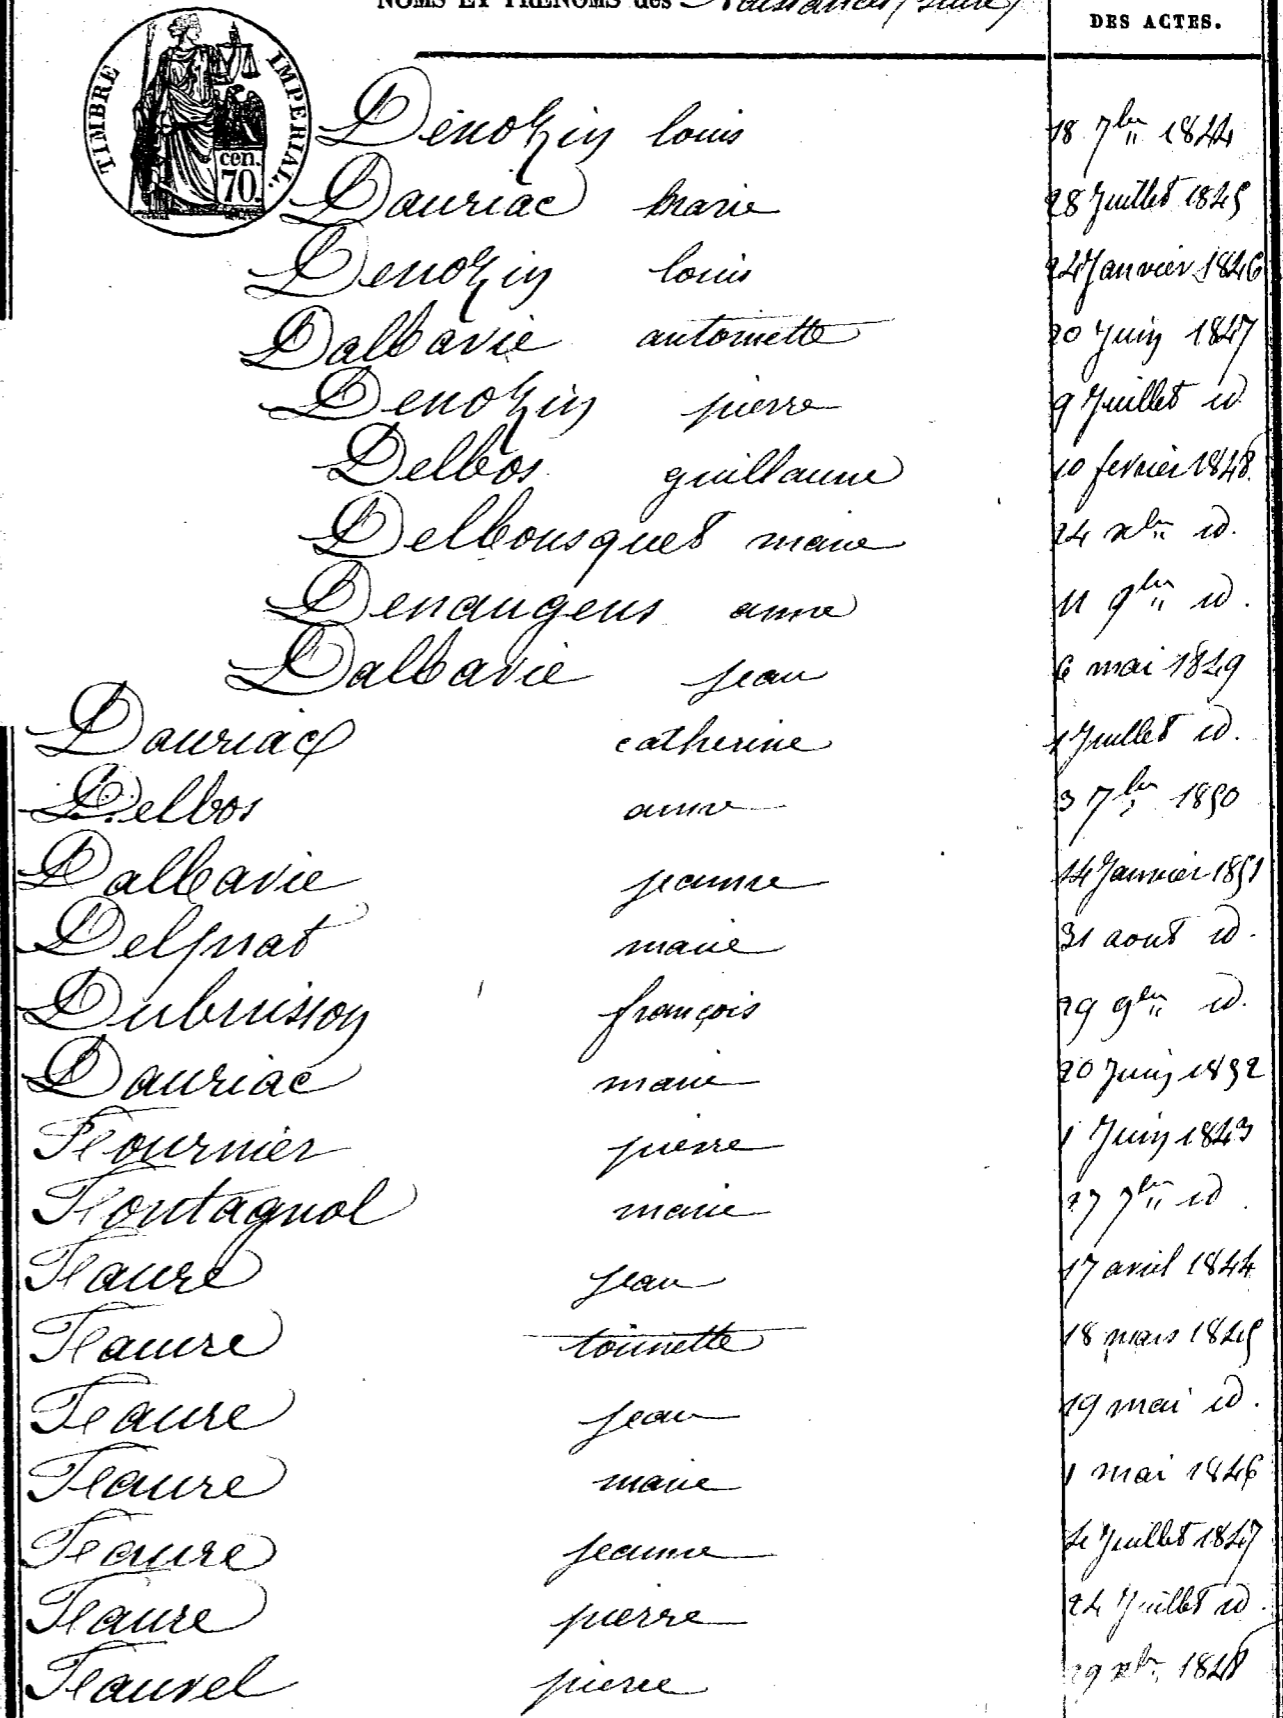 NOMS ET PRÉNOMS des Naissances (suite)
DES ACTES.
TIMBRE IMPERIAL.
cen. 70.
Denozin louis 18 7bre 1844
Dauriac marie 28 Juillet 1845
Denozin louis 24 Janvier 1846
Dalbavie antoinette 20 Juin 1847
Denozin pierre 9 Juillet id
Delbos guillaume 10 fevrier 1848.
Delbousquet marie 24 xbre id.
Denaugeus anne 11 9bre id.
Dalbavie jean 6 mai 1849
Dauriac catherine 1 Juillet id.
Delbos anne 3 7bre 1850
Dalbavie jeanne 14 Janvier 1851
Delprat marie 31 aout id.
Dubuisson françois 29 9bre id.
Dauriac marie 20 Juin 1852
Fournier pierre 1 Juin 1843
Fontagnol marie 27 7bre id.
Faure jean 17 avril 1844
Faure toinette 18 mars 1845
Faure jean 19 mai id.
Faure marie 1 mai 1846
Faure jeanne 4 Juillet 1847
Faure pierre 24 Juillet id.
Fauvel pierre 29 xbre 1848